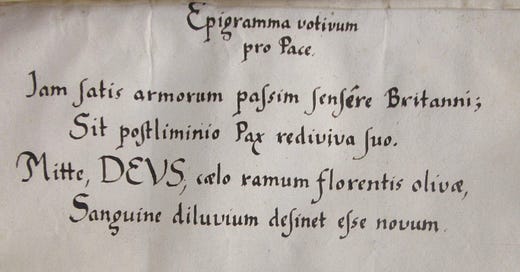 Epigramma votivum
pro Pace.
Jam ſatis armorum paſſim ſenſêre Britanni;
Sit poſtliminio Pax rediviva ſuo.
Mitte, DEVS, cælo ramum florentis olivæ,
Sanguine diluvium deſinet eſſe novum.